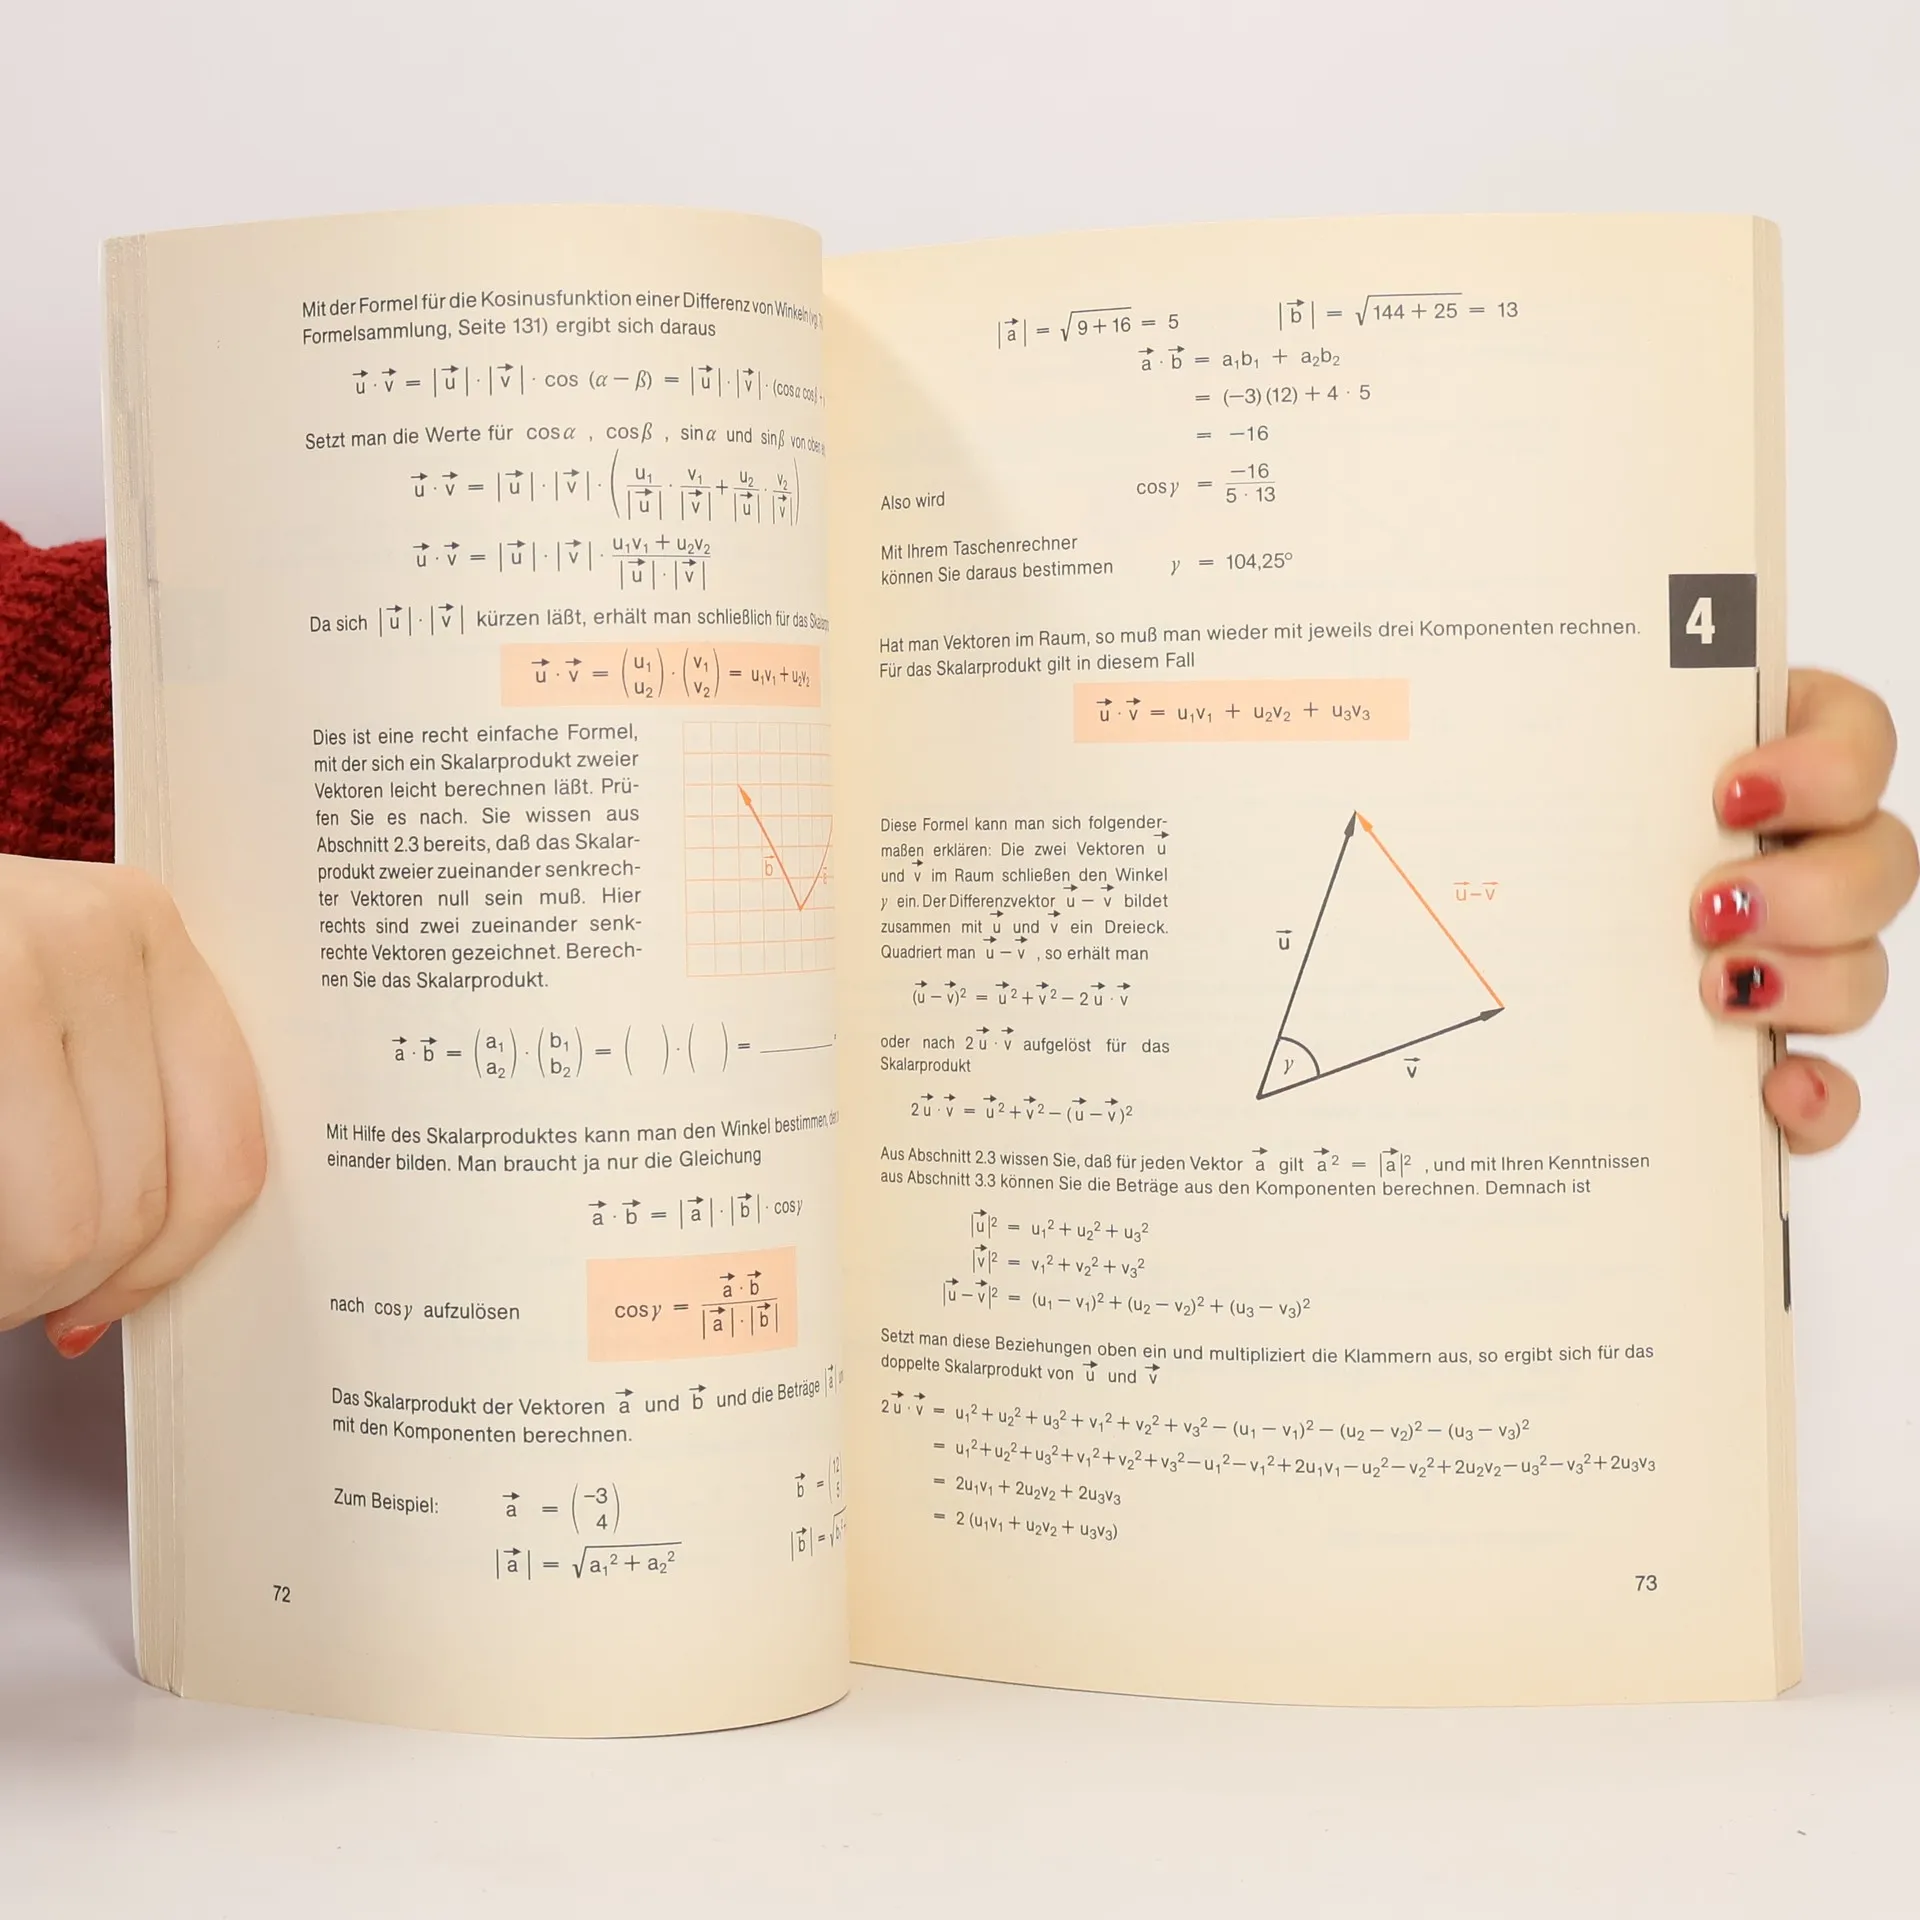 Mit der Formel für die Kosinusfunktion einer Differenz von Winkeln
Formelsammlung, Seite 131) ergibt sich daraus
u⃗ · v⃗ = |u⃗| · |v⃗| · cos (α − β) = |u⃗| · |v⃗| · (cosα cosβ +
Setzt man die Werte für cosα , cosβ , sinα und sinβ von oben
u⃗ · v⃗ = |u⃗| · |v⃗| · (u₁/|u⃗| · v₁/|v⃗| + u₂/|u⃗| · v₂/|v⃗|)
u⃗ · v⃗ = |u⃗| · |v⃗| · (u₁v₁ + u₂v₂)/(|u⃗| · |v⃗|)
Da sich |u⃗| · |v⃗| kürzen läßt, erhält man schließlich für das
u⃗ · v⃗ = (u₁ u₂) · (v₁ v₂) = u₁v₁ + u₂v₂
Dies ist eine recht einfache Formel,
mit der sich ein Skalarprodukt zweier
Vektoren leicht berechnen läßt. Prü-
fen Sie es nach. Sie wissen aus
Abschnitt 2.3 bereits, daß das Skalar-
produkt zweier zueinander senkrech-
ter Vektoren null sein muß. Hier
rechts sind zwei zueinander senk-
rechte Vektoren gezeichnet. Berech-
nen Sie das Skalarprodukt.
b⃗
a⃗ · b⃗ = (a₁ a₂) · (b₁ b₂) = ( ) · ( ) = ______
Mit Hilfe des Skalarproduktes kann man den Winkel bestimmen,
einander bilden. Man braucht ja nur die Gleichung
a⃗ · b⃗ = |a⃗| · |b⃗| · cosγ
nach cosγ aufzulösen cosγ = (a⃗ · b⃗)/(|a⃗| · |b⃗|)
Das Skalarprodukt der Vektoren a⃗ und b⃗ und die Beträge |a⃗|
mit den Komponenten berechnen.
Zum Beispiel: a⃗ = (−3 4) b⃗ = (12 5
|a⃗| = √(a₁² + a₂²) |b⃗| = √
72
|a⃗| = √(9 + 16) = 5 |b⃗| = √(144 + 25) = 13
a⃗ · b⃗ = a₁b₁ + a₂b₂
= (−3) (12) + 4 · 5
= −16
Also wird cosγ = −16/(5 · 13)
Mit Ihrem Taschenrechner
können Sie daraus bestimmen γ = 104,25°
4
Hat man Vektoren im Raum, so muß man wieder mit jeweils drei Komponenten rechnen.
Für das Skalarprodukt gilt in diesem Fall
u⃗ · v⃗ = u₁v₁ + u₂v₂ + u₃v₃
Diese Formel kann man sich folgender-
maßen erklären: Die zwei Vektoren u⃗
und v⃗ im Raum schließen den Winkel
γ ein. Der Differenzvektor u⃗ − v⃗ bildet
zusammen mit u⃗ und v⃗ ein Dreieck.
Quadriert man u⃗ − v⃗ , so erhält man
(u⃗ − v⃗)² = u⃗² + v⃗² − 2u⃗ · v⃗
oder nach 2u⃗ · v⃗ aufgelöst für das
Skalarprodukt
2u⃗ · v⃗ = u⃗² + v⃗² − (u⃗ − v⃗)²
u⃗
u⃗−v⃗
γ
v⃗
Aus Abschnitt 2.3 wissen Sie, daß für jeden Vektor a⃗ gilt a⃗² = |a⃗|² , und mit Ihren Kenntnissen
aus Abschnitt 3.3 können Sie die Beträge aus den Komponenten berechnen. Demnach ist
|u⃗|² = u₁² + u₂² + u₃²
|v⃗|² = v₁² + v₂² + v₃²
|u⃗ − v⃗|² = (u₁ − v₁)² + (u₂ − v₂)² + (u₃ − v₃)²
Setzt man diese Beziehungen oben ein und multipliziert die Klammern aus, so ergibt sich für das
doppelte Skalarprodukt von u⃗ und v⃗
2u⃗ · v⃗ = u₁² + u₂² + u₃² + v₁² + v₂² + v₃² − (u₁ − v₁)² − (u₂ − v₂)² − (u₃ − v₃)²
= u₁²+u₂²+u₃²+v₁²+v₂²+v₃²−u₁²−v₁²+2u₁v₁−u₂²−v₂²+2u₂v₂−u₃²−v₃²+2u₃v₃
= 2u₁v₁ + 2u₂v₂ + 2u₃v₃
= 2 (u₁v₁ + u₂v₂ + u₃v₃)
73